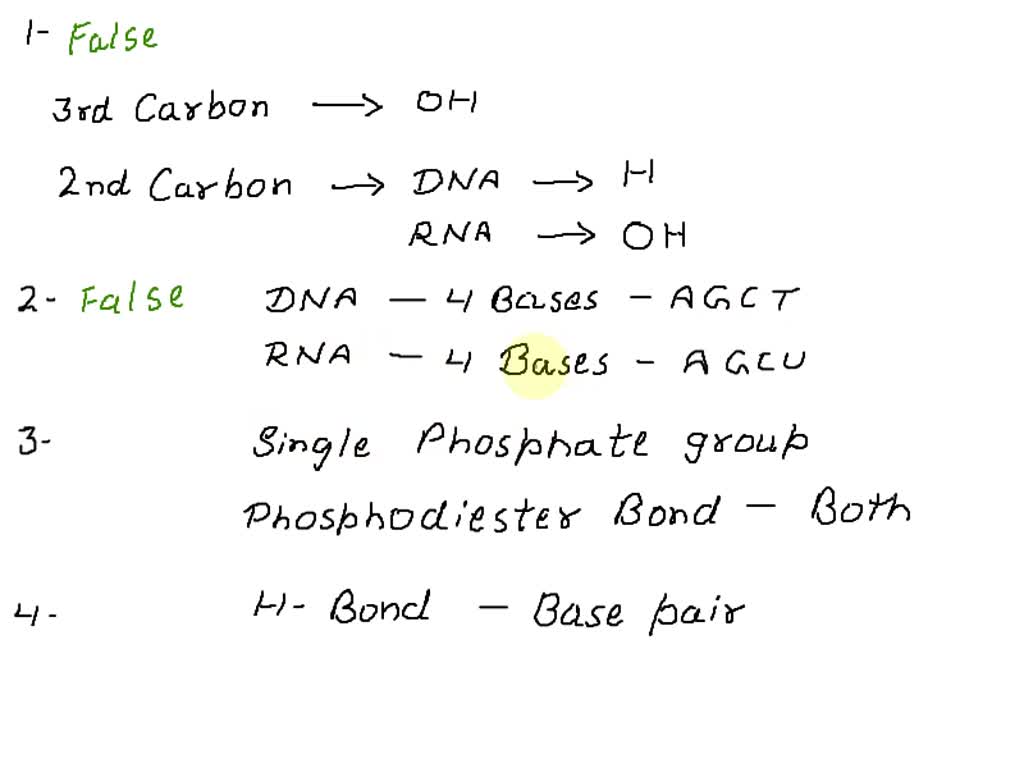 1- False
3rd Carbon → OH
2nd Carbon → DNA → H
RNA → OH
2- False DNA - 4 Bases - AGCT
RNA - 4 Bases - AGCU
3- Single Phosphate group
Phosphodiester Bond - Both
4- H- Bond - Base pair